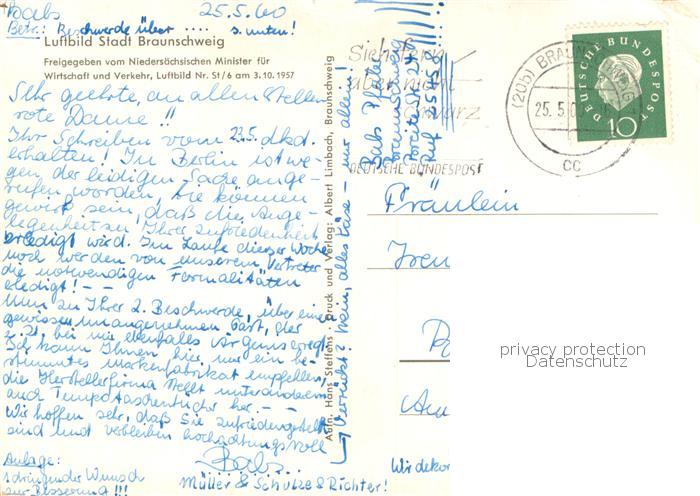 Babs 25.5.60
Betr.: Beschwerde über .... s. unten!
Luftbild Stadt Braunschweig
Freigegeben vom Niedersächsischen Minister für
Wirtschaft und Verkehr, Luftbild Nr. St/6 am 3.10.1957
Sehr geehrte, an allen Stellen
rote Dame!!
Ihr Schreiben vom 23.5. dkd.
erhalten! In Berlin ist we-
gen der leidigen Sache ange-
rufen worden, Sie können
gewiß sein, daß die Ange-
legenheit zu Ihrer Zufriedenheit
erledigt wird. Im Laufe dieser Woche
noch werden von unserem Vertreter
die notwendigen Formalitäten
erledigt! - -
Nun zu Ihrer 2. Beschwerde, über eine
gewissen unangenehmen Gast, der
z. Zt. bei mir ebenfalls Ärgernis erregt
Ich kann Ihnen hier nur ein be-
stimmtes Markenfabrikat empfehlen,
die Herstellerfirma stellt unter anderem
auch Tempotaschentücher her. - -
Wir hoffen sehr, daß Sie zufriedengestellt
sind und verbleiben hochachtungsvoll
Babs
Müller & Schulze & Richter!
Anlage:
1 dringender Wunsch
zur Besserung!!!
Aufn. Hans Steffens · Druck und Verlag: Albert Limbach, Braunschweig
Verrückt? Nein, alles Käse - nur allein!
Babs
Braunschweig
Ruf
(20b) BRAUNSCHWEIG
25.5.60
cc
DEUTSCHE BUNDESPOST
DEUTSCHE BUNDESPOST
10
Fräulein
Wir dekor
privacy protection
Datenschutz